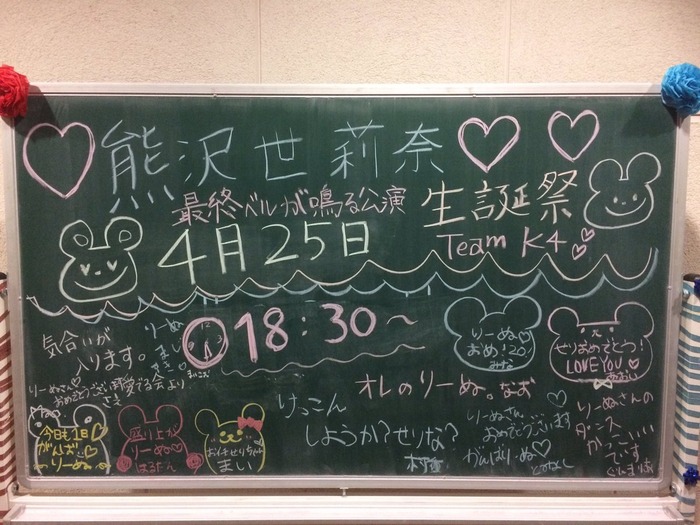 熊沢世莉奈
最終ベルが鳴る公演
生誕祭
4月25日
Team K4
18:30〜
気合いが
入ります。
りーぬ
まじ
りーぬさん
おめでとうございます
愛でる会より
りーぬ♡
おめ!20!
みな
せりおめでとう!
LOVE YOU♡
あおい
オレのりーぬ。なお
けっこん
しようか?せりな?
りーぬさん
おめでとうございます
がんばり・ぬ♡
りーぬさんの
ダンス
かっこいい
です
ぐんまりあ
今日も1日
がんば
りーぬ♡
盛り上がり
りーぬ♡
はるたん
おイチせりちゃん
まい